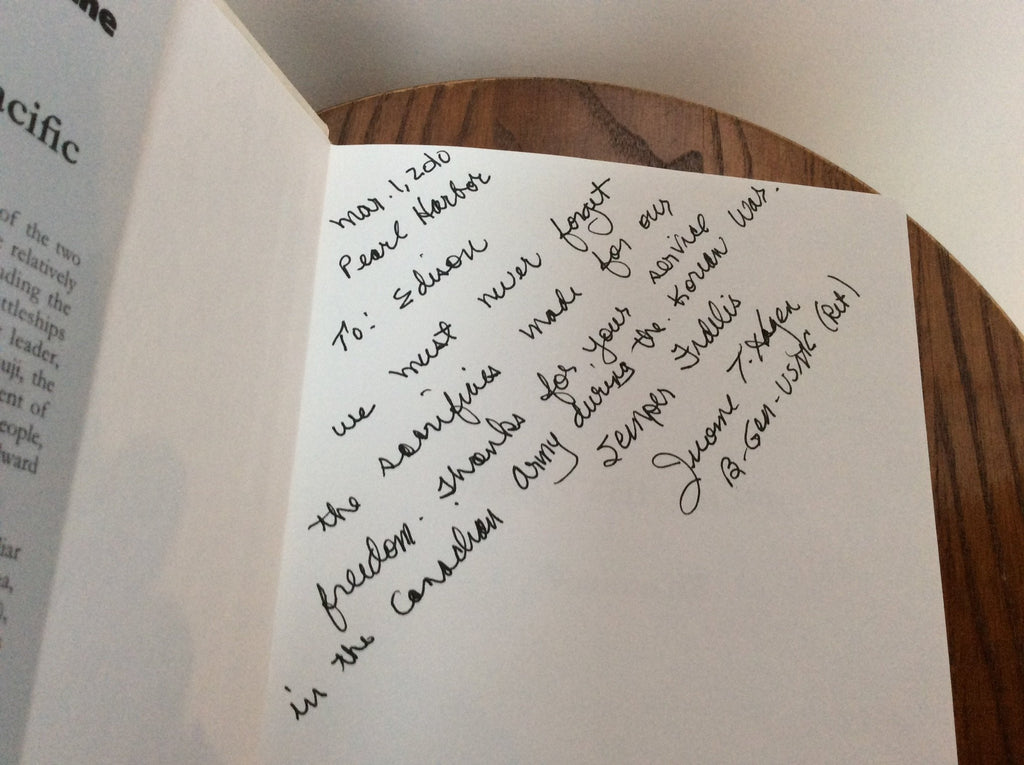 ne
acific
of the two
relatively
ading the
ttleships
leader,
uji, the
ent of
eople,
ward
iar
a,
Mar. 1, 2010
Pearl Harbor
To: Edison
we must never forget
the sacrifices made for our
freedom. Thanks for your service
in the Canadian army during the Korean War.
Semper Fidelis
Jerome T. Hagen
B. Gen - USMC (Ret)